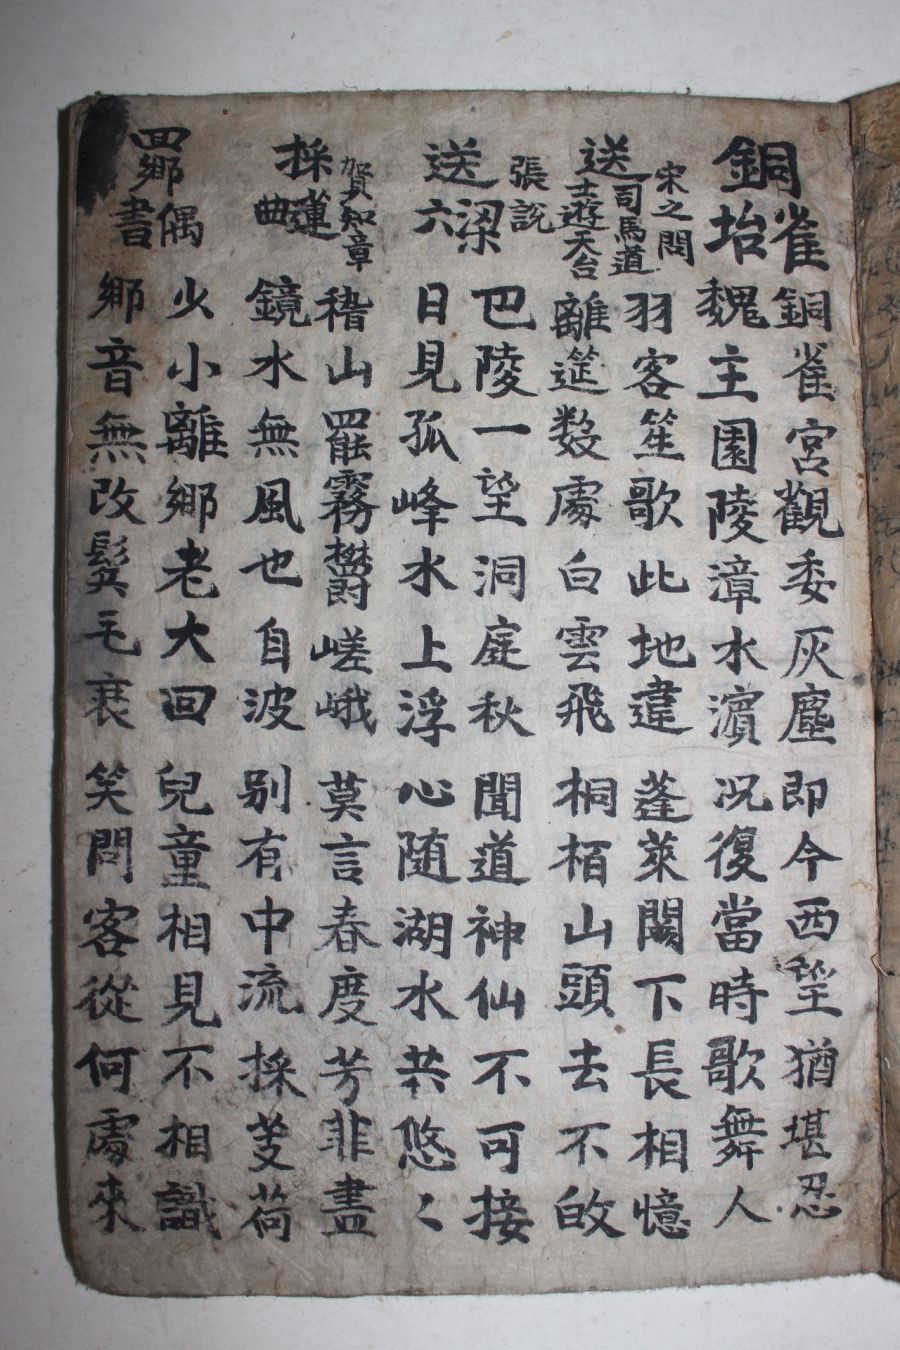 銅雀坮
銅雀宮觀委灰塵 即今西望猶堪忍
魏主園陵漳水濵 况復當時歌舞人
宋之問
送司馬道士遊天台
羽客笙歌此地違 蓬萊闕下長相憶
離筵數處白雲飛 桐栢山頭去不敀
張說
送梁六
巴陵一望洞庭秋 聞道神仙不可接
日見孤峰水上浮 心随湖水共悠〻
賀知章
採蓮曲
稽山罷霧欝嵯峨 莫言春度芳菲盡
鏡水無風也自波 别有中流採芰荷
回鄉偶書
少小離鄉老大回 兒童相見不相識
鄉音無改鬂毛衰 笑問客從何處來